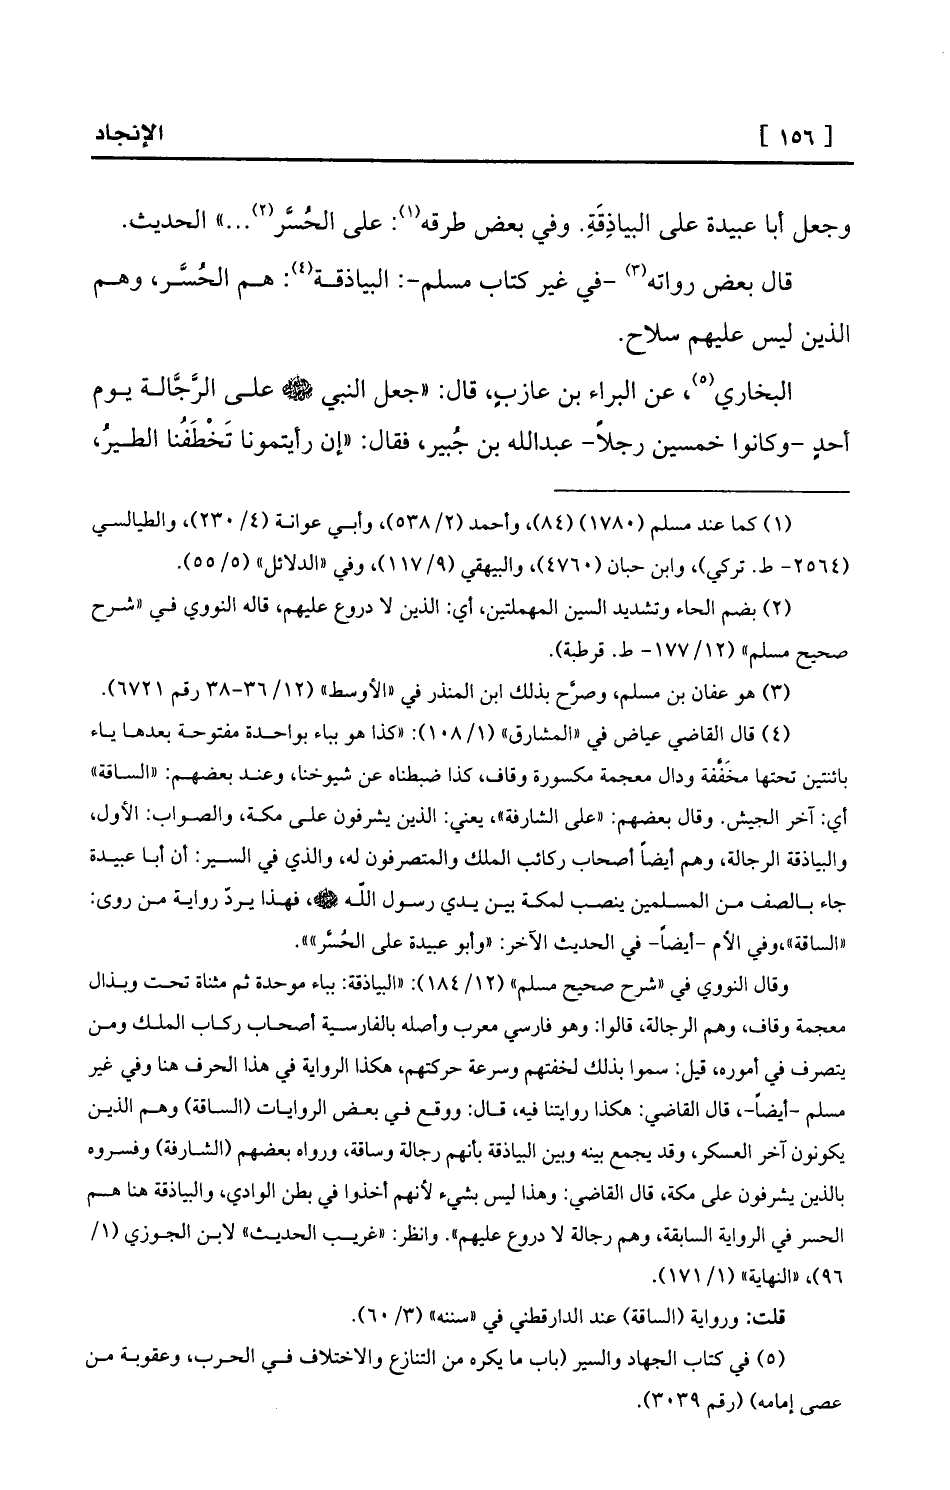 [ ١٥٦ ] الإنجاد
وجعل أبا عبيدة على البياذِقَةِ. وفي بعض طرقه(١): على الحُسَّر(٢)...» الحديث.
قال بعض رواته(٣) -في غير كتاب مسلم-: البياذقـة(٤): هـم الحُسَّـر، وهـم
الذين ليس عليهم سلاح.
البخاري(٥)، عن البراء بن عازبٍ، قال: «جعل النبي ﷺ علـى الرَّجَّالـة يـوم
أحدٍ -وكانوا خمسين رجلاً- عبدالله بن جُبير، فقال: «إن رأيتمونا تَخْطَفُنا الطـيرُ،
(١) كما عند مسلم (١٧٨٠) (٨٤)، وأحمد (٢/ ٥٣٨)، وأبـي عوانـة (٤/ ٢٣٠)، والطيالسـي
(٢٥٦٤- ط. تركي)، وابن حبان (٤٧٦٠)، والبيهقي (٩/ ١١٧)، وفي «الدلائل» (٥/ ٥٥).
(٢) بضم الحاء وتشديد السين المهملتين، أي: الذين لا دروع عليهم، قاله النووي فـي «شـرح
صحيح مسلم» (١٢/ ١٧٧- ط. قرطبة).
(٣) هو عفان بن مسلم، وصرَّح بذلك ابن المنذر في «الأوسط» (١٢/ ٣٦-٣٨ رقم ٦٧٢١).
(٤) قال القاضي عياض في «المشارق» (١/ ١٠٨): «كذا هو بباء بواحـدة مفتوحـة بعدهـا يـاء
باثنتين تحتها مخفَّفة وذال معجمة مكسورة وقاف، كذا ضبطناه عن شيوخنا، وعنـد بعضهـم: «السـاقة»
أي: آخر الجيش. وقال بعضهم: «على الشارفة»، يعني: الذين يشرفون علـى مكـة، والصـواب: الأول،
والبياذقة الرجالة، وهم أيضاً أصحاب ركائب الملك والمتصرفون له، والذي في السير: أن أبـا عبيـدة
جاء بـالصف مـن المسـلمين ينصـب لمكـة بيـن يـدي رسـول اللّه ﷺ، فهـذا يـردّ روايـة مـن روى:
«الساقة»،وفي الأم -أيضاً- في الحديث الآخر: «وأبو عبيدة على الحُسَّر»».
وقال النووي في «شرح صحيح مسلم» (١٢/ ١٨٤): «البياذقة: بباء موحدة ثم مثناة تحـت وبـذال
معجمة وقاف، وهم الرجالة، قالوا: وهو فارسي معرب وأصله بالفارسية أصحـاب ركـاب الملـك ومـن
يتصرف في أموره، قيل: سموا بذلك لخفتهم وسرعة حركتهم، هكذا الرواية في هذا الحرف هنا وفي غير
مسلم -أيضاً-، قال القاضي: هكذا روايتنا فيه، قـال: ووقـع فـي بعـض الروايـات (الساقة) وهـم الذيـن
يكونون آخر العسكر، وقد يجمع بينه وبين البياذقة بأنهم رجالة وساقة، ورواه بعضهم (الشـارفة) وفسـروه
بالذين يشرفون على مكة، قال القاضي: وهذا ليس بشيء لأنهم أخذوا في بطن الوادي، والبياذقة هنا هـم
الحسر في الرواية السابقة، وهم رجالة لا دروع عليهم». وانظر: «غريب الحديث» لابـن الجـوزي (١/
٩٦)، «النهاية» (١/ ١٧١).
قلت: ورواية (الساقة) عند الدارقطني في «سننه» (٣/ ٦٠).
(٥) في كتاب الجهاد والسير (باب ما يكره من التنازع والاختلاف فـي الحـرب، وعقوبـة مـن
عصى إمامه) (رقم ٣٠٣٩).